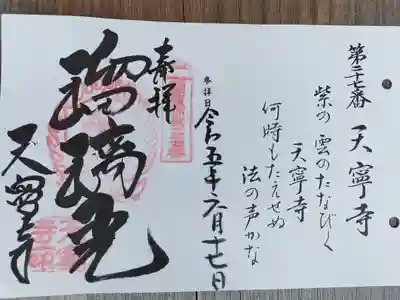 第二十七番 天寧寺
紫の 雲のたなびく
天寧寺
何時もたえせぬ
法の声かな
参拝日
令和五年六月十七日
奉拝
瑠璃光
天寧寺